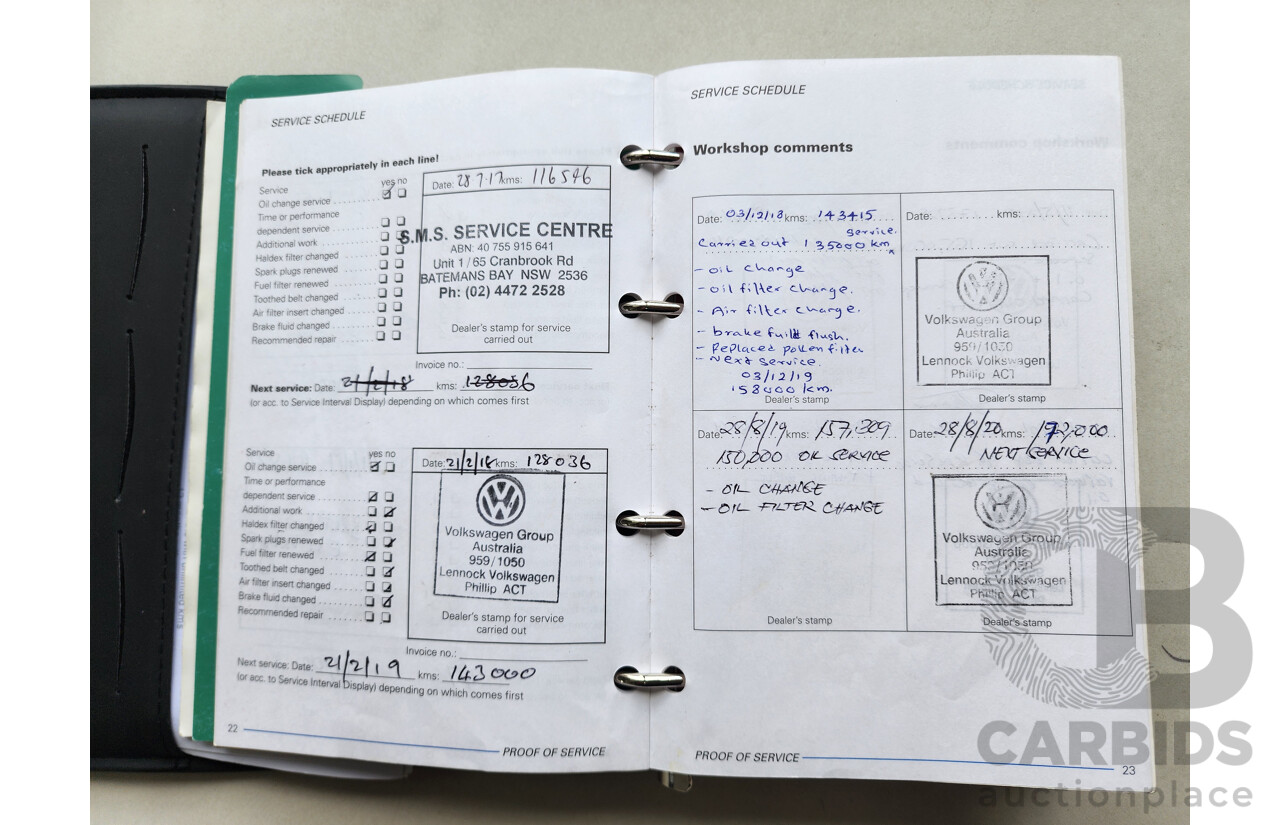 SERVICE SCHEDULE
Please tick appropriately in each line!
Service yes no
Oil change service
Time or performance
dependent service
Additional work
Haldex filter changed
Spark plugs renewed
Fuel filter renewed
Toothed belt changed
Air filter insert changed
Brake fluid changed
Recommended repair
Date: 28.7.17 kms: 116546
S.M.S. SERVICE CENTRE
ABN: 40 755 915 641
Unit 1/65 Cranbrook Rd
BATEMANS BAY NSW 2536
Ph: (02) 4472 2528
Dealer's stamp for service
carried out
Invoice no.:
Next service: Date: 21/2/18 kms: 128036
(or acc. to Service Interval Display) depending on which comes first
Service yes no
Oil change service
Time or performance
dependent service
Additional work
Haldex filter changed
Spark plugs renewed
Fuel filter renewed
Toothed belt changed
Air filter insert changed
Brake fluid changed
Recommended repair
Date: 21/2/18 kms: 128036
Volkswagen Group
Australia
959/1050
Lennock Volkswagen
Phillip ACT
Dealer's stamp for service
carried out
Invoice no.:
Next service: Date: 21/2/19 kms: 143000
(or acc. to Service Interval Display) depending on which comes first
22
PROOF OF SERVICE
SERVICE SCHEDULE
Workshop comments
Date: 03/12/18 kms: 143415
service.
Carried out 135000 km
- oil change
- oil filter change.
- Air filter change.
- brake fuild flush.
- Replaced pollen filter
- Next service.
03/12/19
158000 km.
Dealer's stamp
Date: kms:
Volkswagen Group
Australia
959/1050
Lennock Volkswagen
Phillip ACT
Dealer's stamp
Date: 28/8/19 kms: 157,309
150,000 OIL SERVICE
- OIL CHANGE
- OIL FILTER CHANGE
Dealer's stamp
Date: 28/8/20 kms: 172,000
NEXT SERVICE
Volkswagen Group
Australia
959/1050
Lennock Volkswagen
Phillip ACT
Dealer's stamp
PROOF OF SERVICE
23
CARBIDS
auctionplace